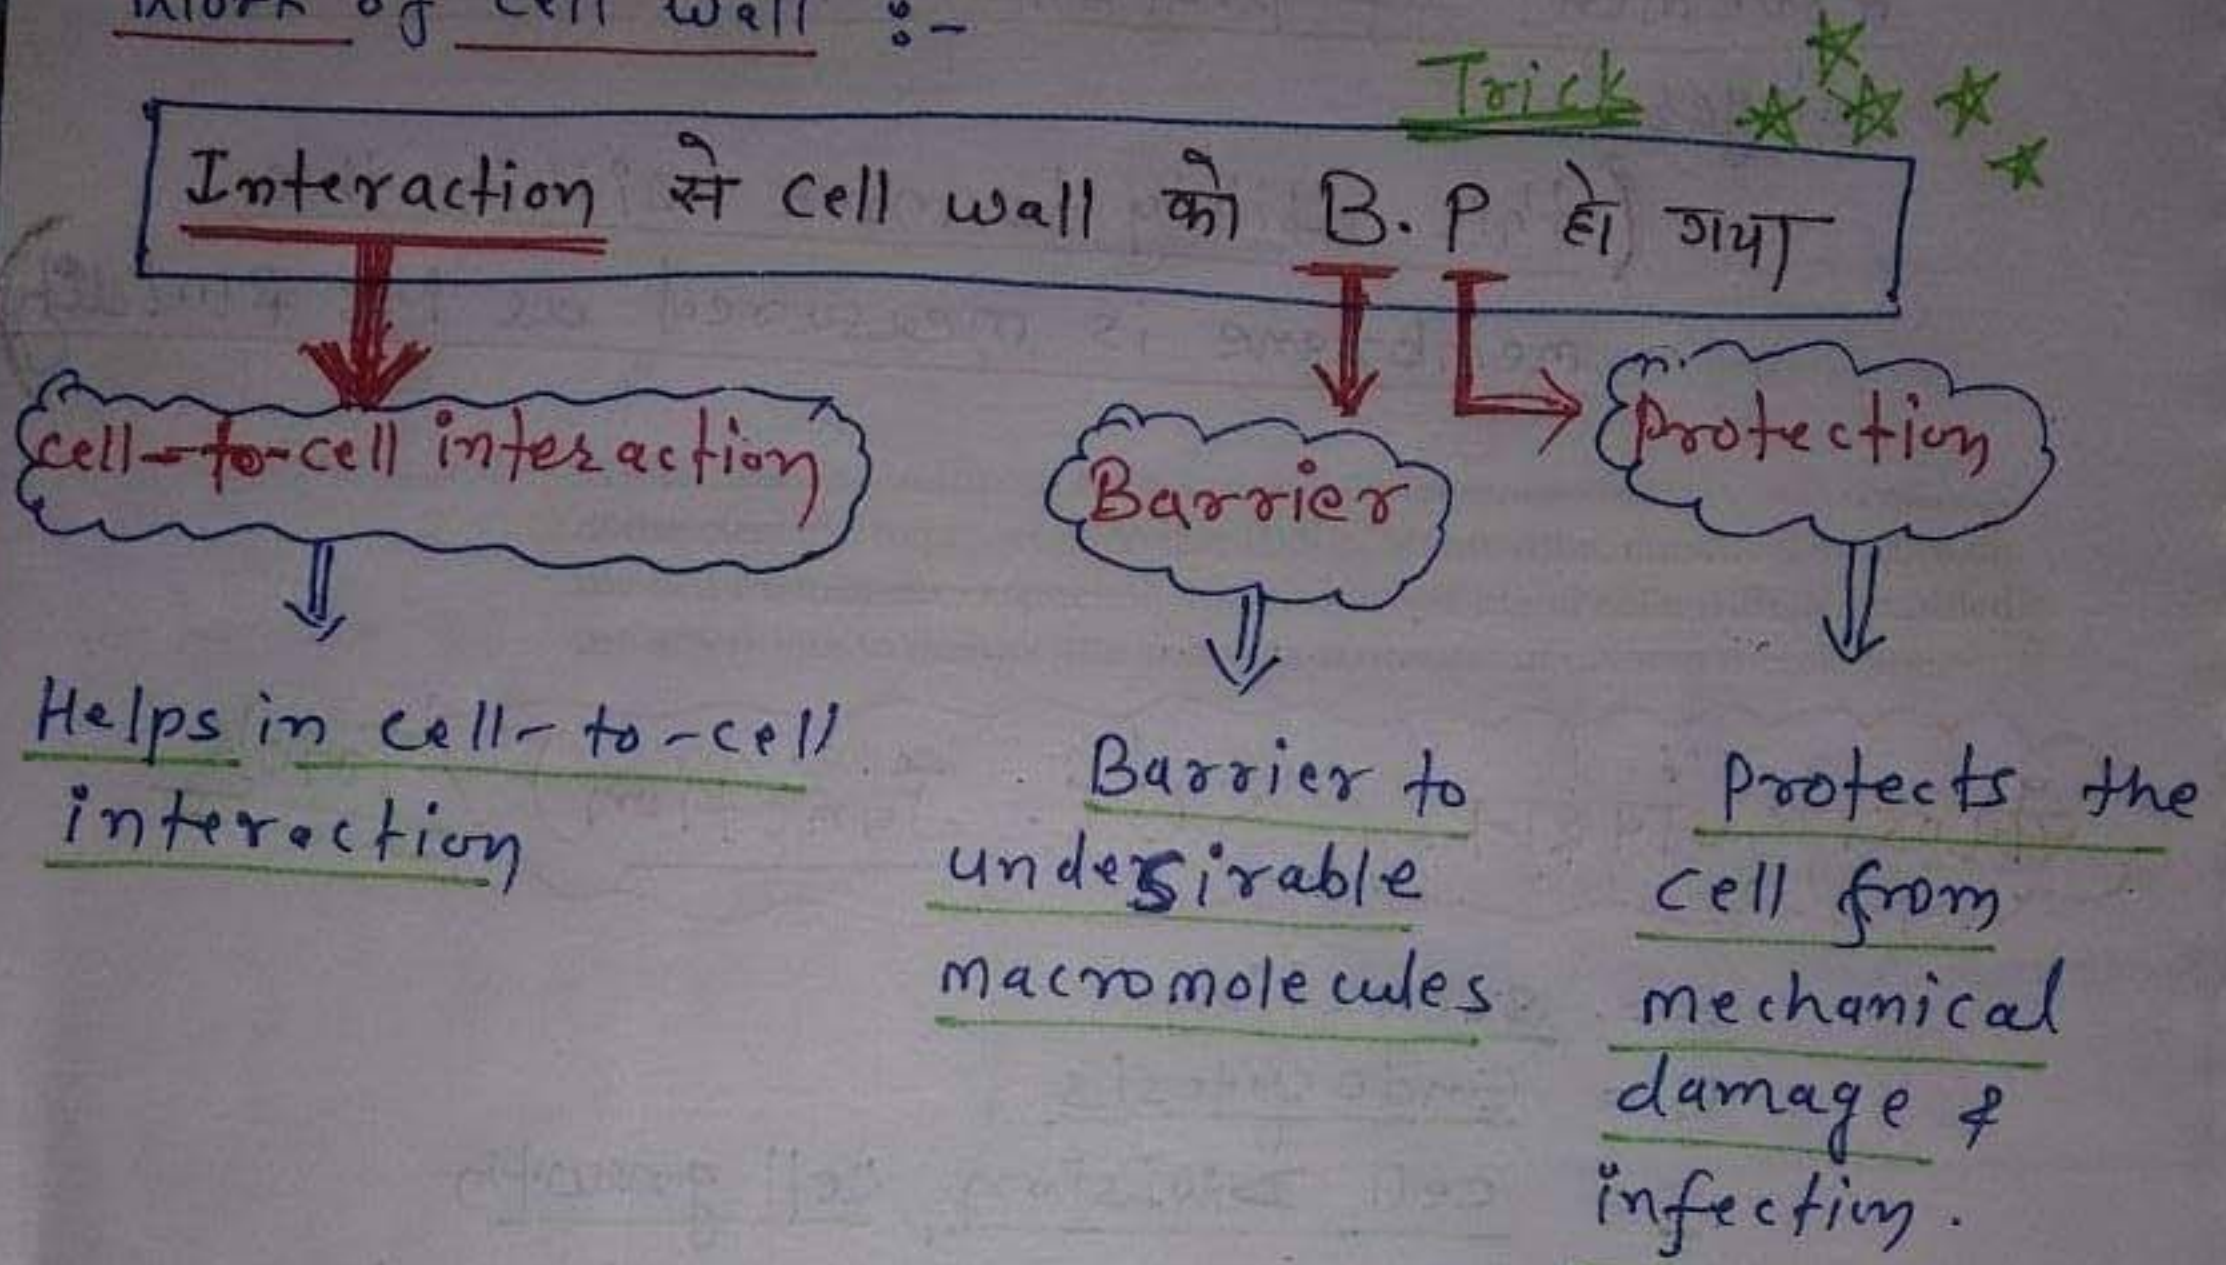 Work of Cell Wall :-
Trick
Interaction से Cell wall को B.P हो गया
cell-to-cell interaction
Barrier
Protection
Helps in cell-to-cell
interaction
Barrier to
undesirable
macromolecules
Protects the
cell from
mechanical
damage &
infection.